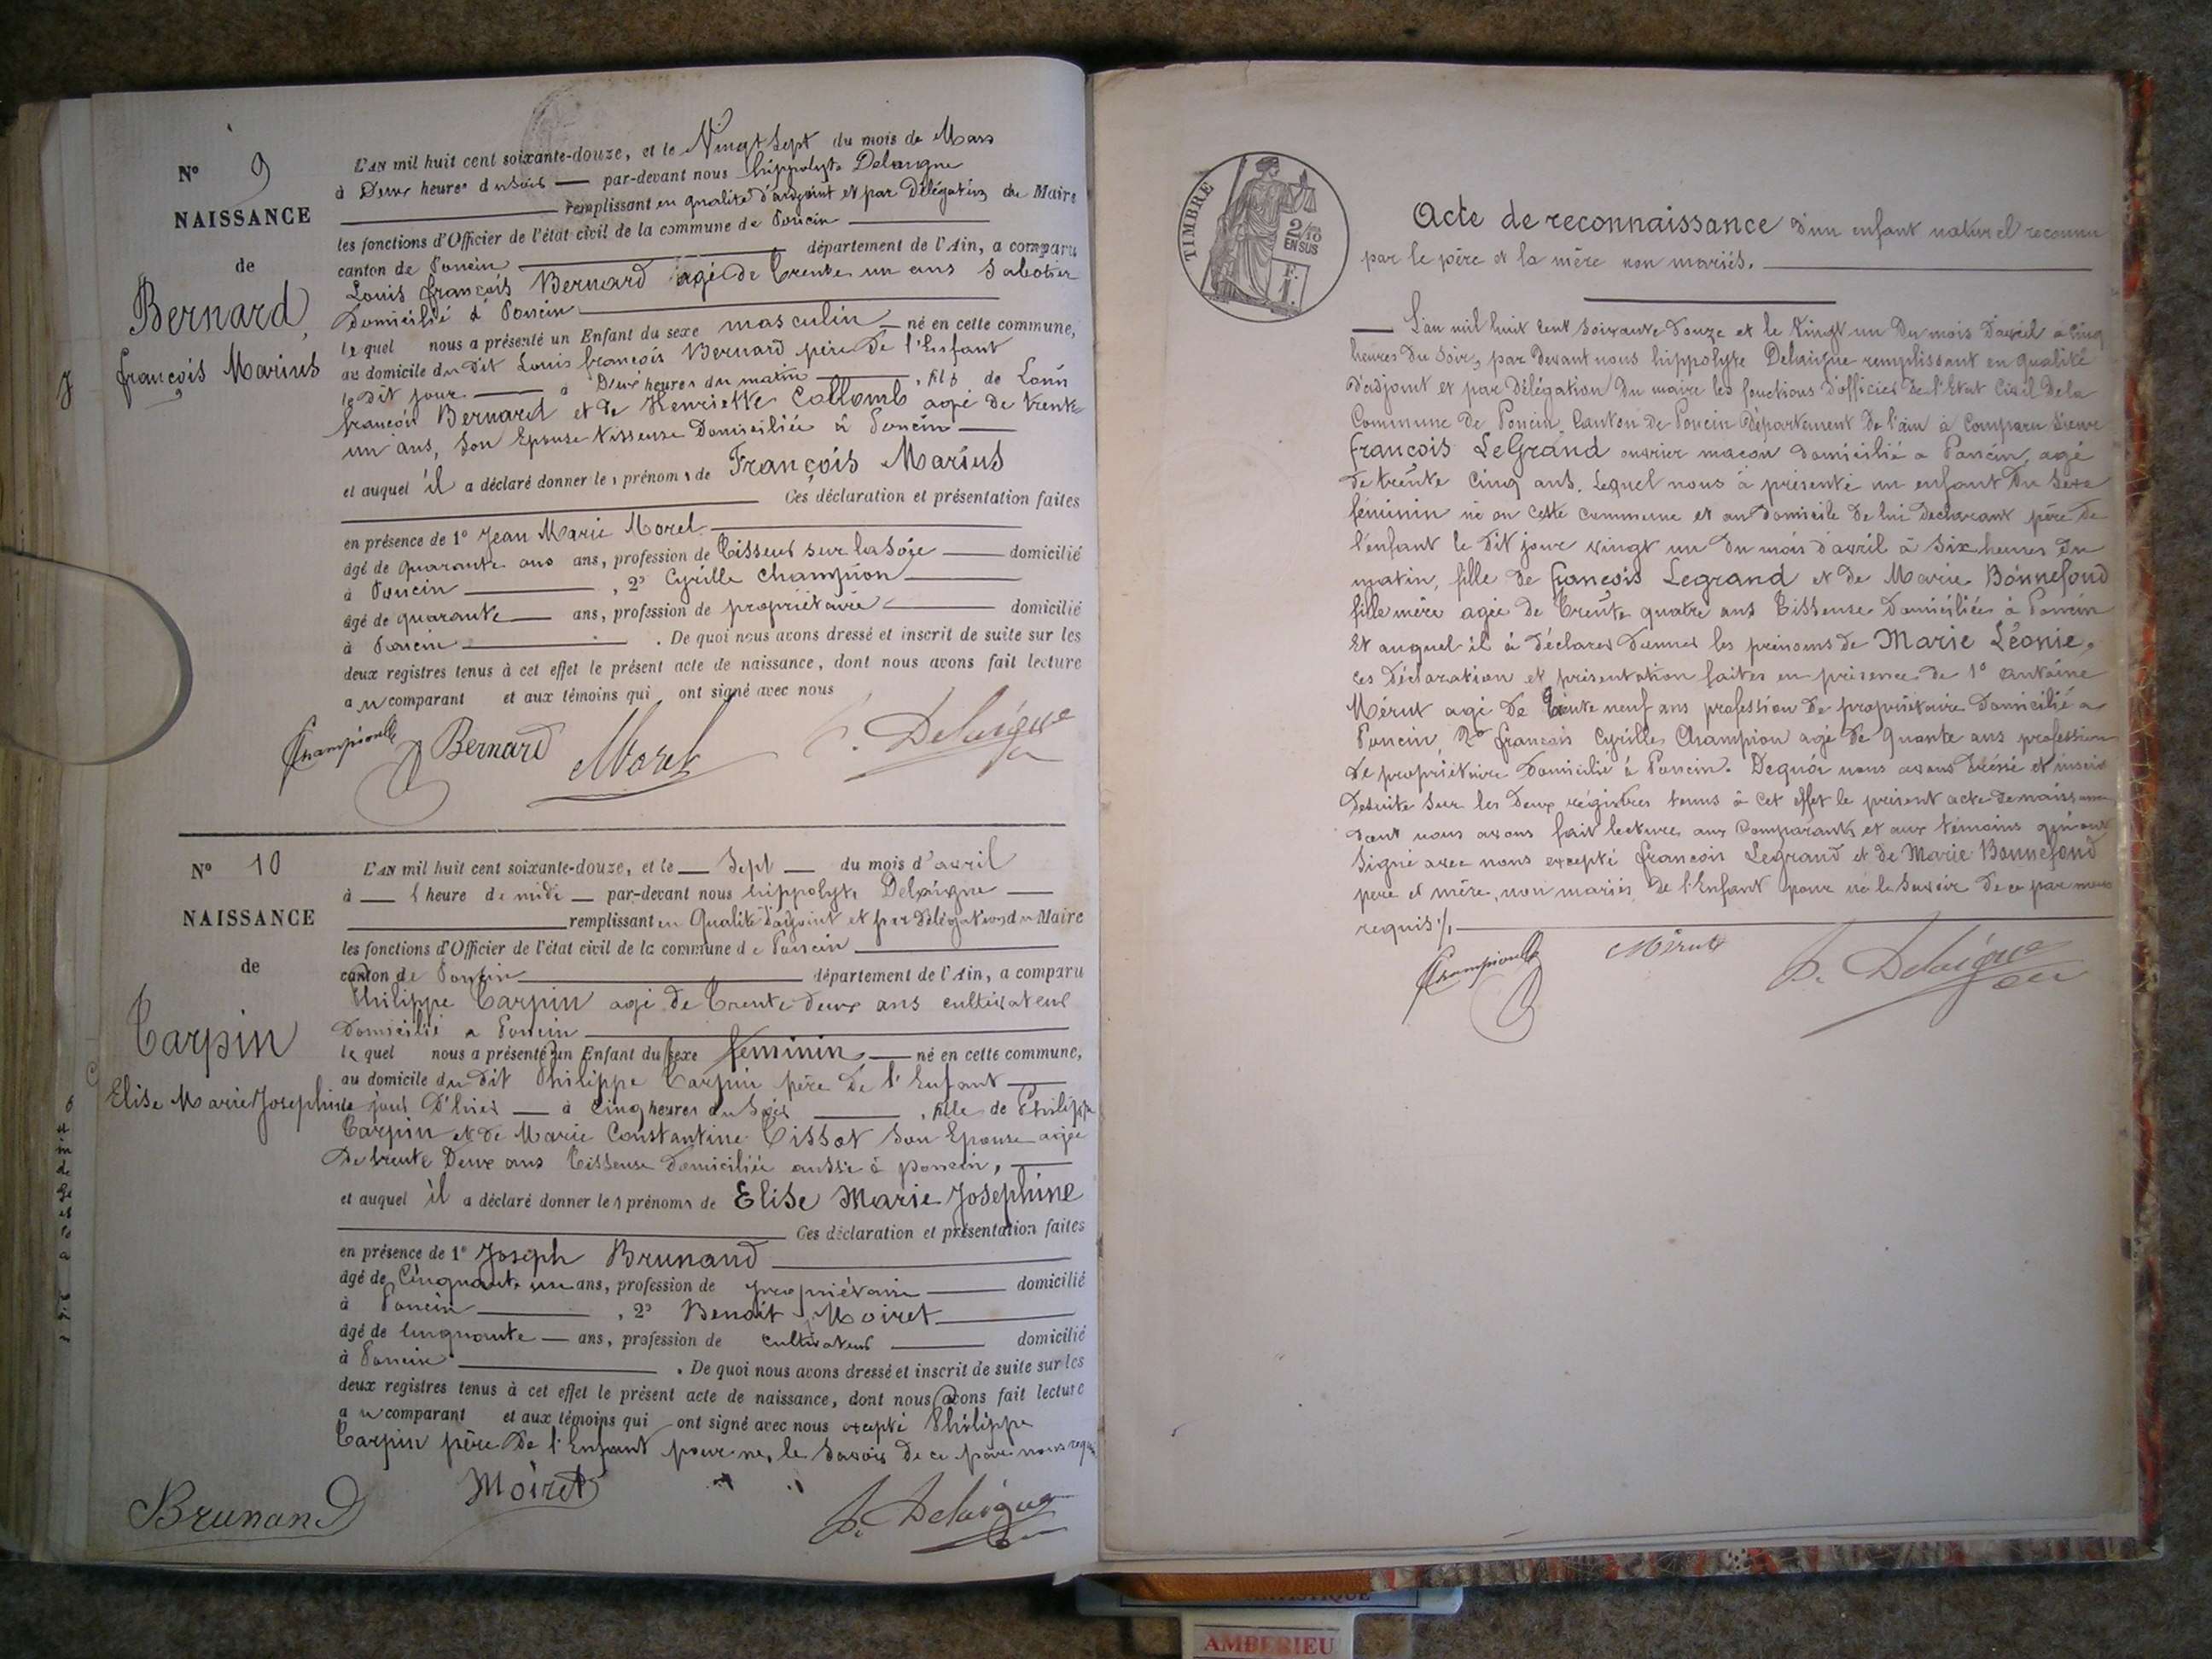 N° 9
NAISSANCE
de
Bernard
françois Marius
L'AN mil huit cent soixante-douze, et le Vingt Sept du mois de Mars
à Deux heures du Soir — par-devant nous hippolyte Delaigue
remplissant en qualité d'adjoint et par Délégation du Maire
les fonctions d'Officier de l'état civil de la commune de Poncin
canton de Poncin département de l'Ain, a comparu
Louis françois Bernard agé de trente un ans Sabotier
Domicilié à Poncin
lequel nous a présenté un Enfant du sexe masculin — né en cette commune,
au domicile du dit Louis françois Bernard père de l'Enfant
le dit jour — à Deux heures du matin , fils de Louis
françois Bernard et de Henriette Collomb agé de trente
un ans, Son Epouse tisseuse Domiciliée à Poncin
et auquel il a déclaré donner les prénoms de François Marius
Ces déclaration et présentation faites
en présence de 1° Jean Marie Morel
âgé de quarante ans, profession de tisseur sur la Soie domicilié
à Poncin , 2° Cyrille Champion
âgé de quarante ans, profession de propriétaire domicilié
à Poncin . De quoi nous avons dressé et inscrit de suite sur les
deux registres tenus à cet effet le présent acte de naissance, dont nous avons fait lecture
au comparant et aux témoins qui ont signé avec nous
Bernard Morel Delaigue
N° 10
NAISSANCE
de
Carpin
Elise Marie Josephine
L'AN mil huit cent soixante-douze, et le — Sept — du mois d'avril
à — 1 heure de midi — par-devant nous hippolyte Delaigue
remplissant en Qualité d'adjoint et par délégation du Maire
les fonctions d'Officier de l'état civil de la commune de Poncin
canton de Poncin département de l'Ain, a comparu
Philippe Carpin agé de trente deux ans cultivateur
Domicilié a Poncin
lequel nous a présenté un Enfant du sexe féminin — né en cette commune,
au domicile du dit Philippe Carpin père de l'Enfant
le jour d'hier — à cinq heures du Soir , fille de Philippe
Carpin et de Marie Constantine Tissot Son Epouse agée
De trente Deux ans tisseuse Domiciliée aussi à poncin,
et auquel il a déclaré donner les prénoms de Elise Marie Josephine
Ces déclaration et présentation faites
en présence de 1° Joseph Brunand
âgé de Cinquante un ans, profession de propriétaire domicilié
à Poncin , 2° Benoit Moiret
âgé de cinquante — ans, profession de cultivateur domicilié
à Poncin . De quoi nous avons dressé et inscrit de suite sur les
deux registres tenus à cet effet le présent acte de naissance, dont nous avons fait lecture
au comparant et aux témoins qui ont signé avec nous excepté Philippe
Carpin père De l'Enfant pour ne le Savoir De ce par nous requis
Brunand Moiret Delaigue
TIMBRE
2/10
EN SUS
F.
1.
Acte de reconnaissance d'un enfant naturel reconnu
par le père et la mère non mariés.
— L'an mil huit cent soixante Douze et le Vingt un Du mois D'avril a cinq
heures Du Soir, par Devant nous hippolyte Delaigue remplissant en qualité
D'adjoint et par Délégation Du maire les fonctions D'officier De l'Etat Civil De la
Commune De Poncin, Canton De Poncin Département De l'ain à Comparu Sieur
françois LeGrand ouvrier maçon Domicilié a Poncin, agé
De trente Cinq ans. Lequel nous à présenté un enfant Du Sexe
féminin né en cette commune et au Domicile De lui Declarant père De
l'enfant le Dit jour vingt un Du mois d'avril à Six heures Du
matin, fille De françois Legrand et De Marie Bonnefond
fille mère agée De trente quatre ans tisseuse Domiciliée à Poncin
Et auquel il à Déclarer Donner les prénoms De Marie Léonie.
ces Déclaration et présentation faites en présence De 1° antoine
Mérut agé De trente neuf ans profession De propriétaire Domicilié a
Poncin, 2° françois Cyrille Champion agé De quante ans profession
De propriétaire Domicilié à Poncin. De quoi nous avons Dréssé et inscrit
Desuite Sur les Deux régistres tenus à Cet effet le présent acte De naissance
Dont nous avons fait lecture aux Comparants et aux témoins qui ont
Signé avec nous excepté françois Legrand et De Marie Bonnefond
père et mère, non mariés De l'Enfant pour ne le Savoir De ce par nous
requis ./.
Mérut Delaigue
AMBERIEU